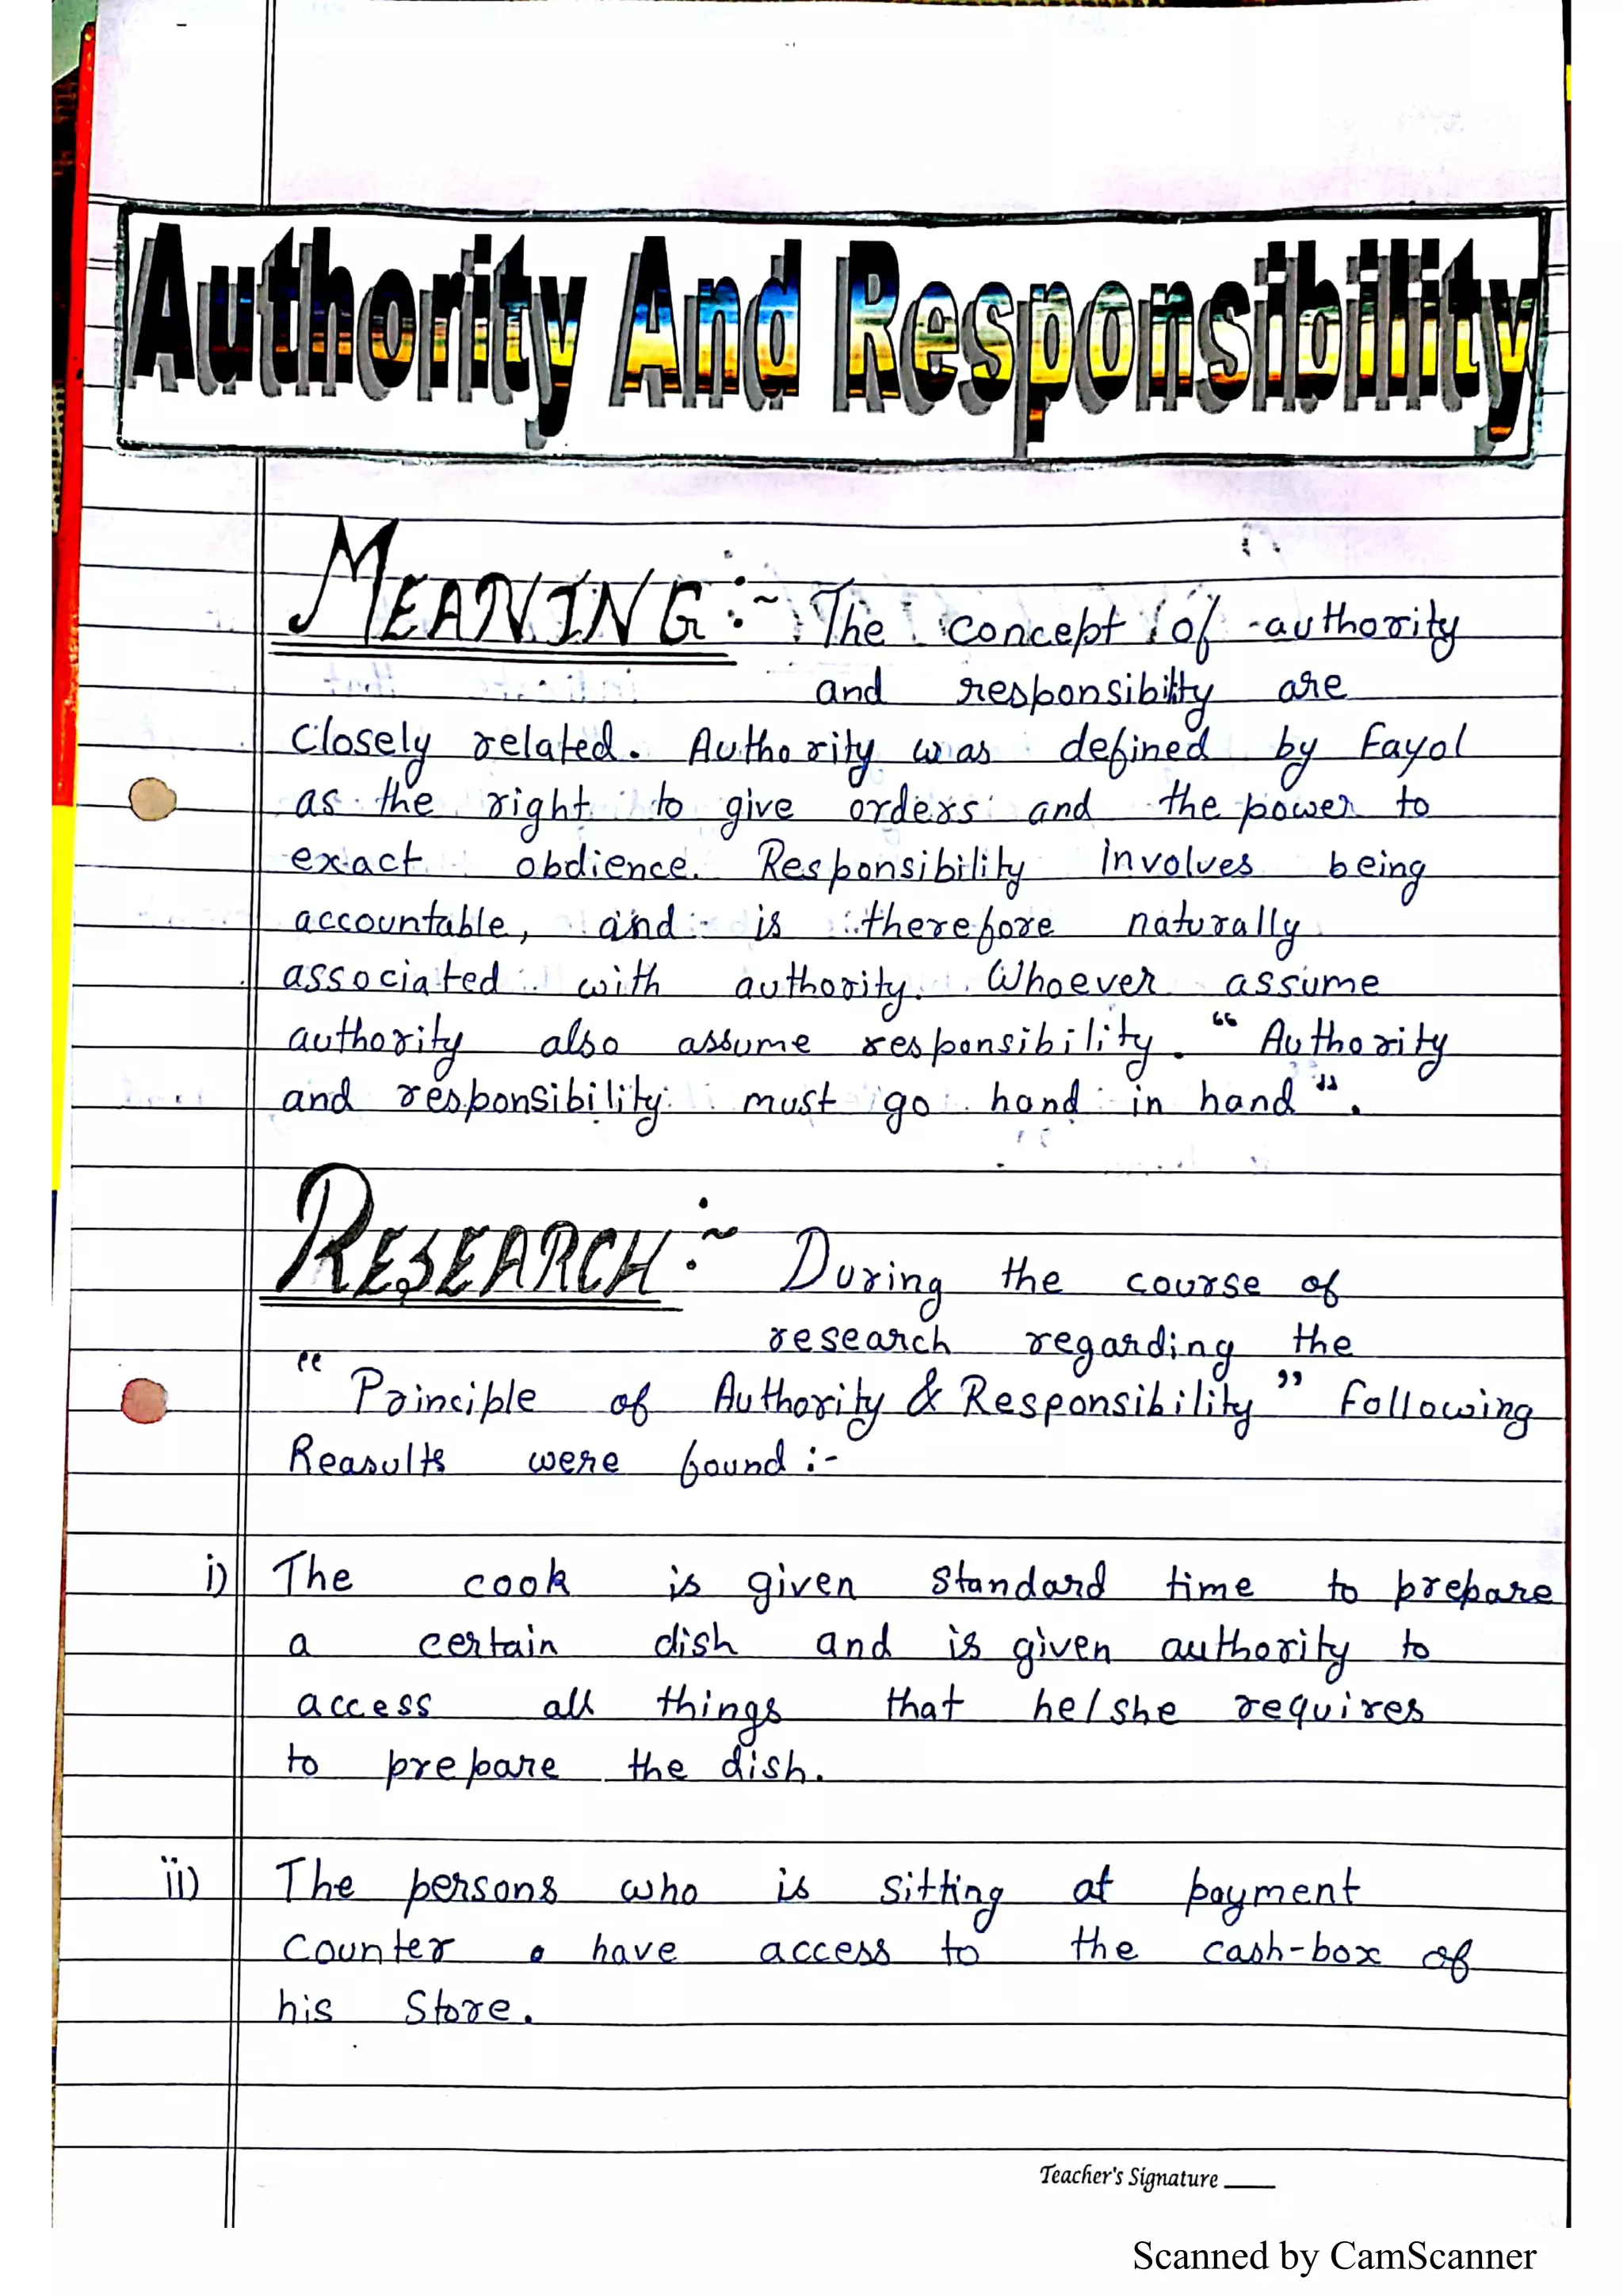 Authority And Responsibility
MEANING:~ The concept of authority
and responsibility are
closely related. Authority was defined by Fayol
as the right to give orders and the power to
exact obdience. Responsibility involves being
accountable, and is therefore naturally
associated with authority. Whoever assume
authority also assume responsibility. "Authority
and responsibility must go hand in hand".
RESEARCH:~ During the course of
research regarding the
"Principle of Authority & Responsibility" Following
Reasults were found :-
i) The cook is given standard time to prepare
a certain dish and is given authority to
access all things that he/she requires
to prepare the dish.
ii) The persons who is sitting at payment
Counter have access to the cash-box of
his Store.
Teacher's Signature ____
Scanned by CamScanner